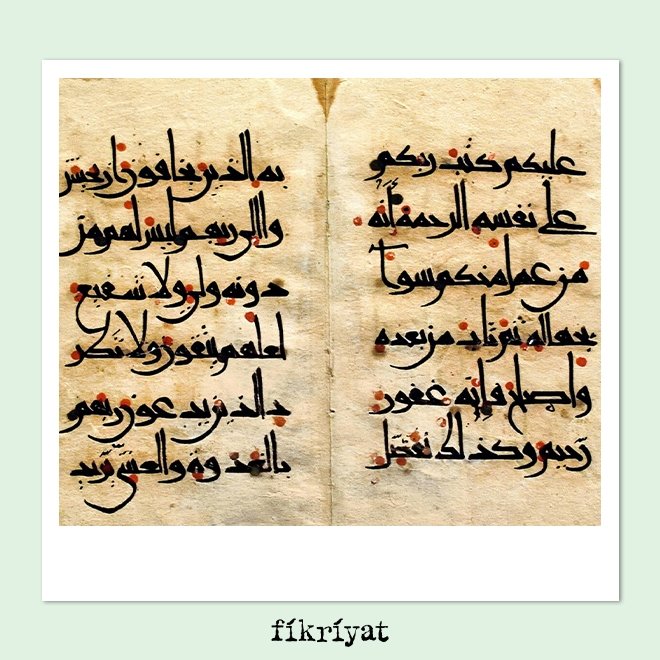 عليكم كتب ربكم
على نفسه الرحمة أنه
من عمل منكم سوءا
بجهالة ثم تاب من بعده
وأصلح فإنه غفور
رحيم وكذلك نفصل
به الذين يخافون أن يحشر
وا إلى ربهم ليس لهم من
دونه ولي ولا شفيع
لعلهم يتقون ولا تطر
د الذين يدعون ربهم
بالغدوة والعشي يريد
fikriyat